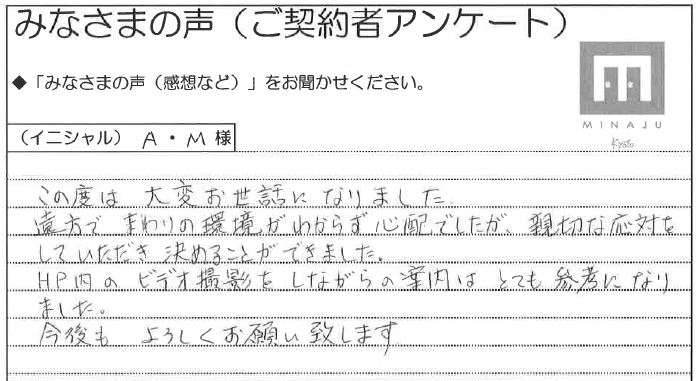 みなさまの声（ご契約者アンケート）
◆「みなさまの声（感想など）」をお聞かせください。
MINAJU
Kyoto
（イニシャル） A・M 様
この度は 大変お世話になりました.
遠方で まわりの環境がわからず 心配でしたが、親切な応対を
していただき 決めることができました。
HP内の ビデオ撮影をしながらの案内は とても 参考になり
ました。
今後も よろしくお願い致します